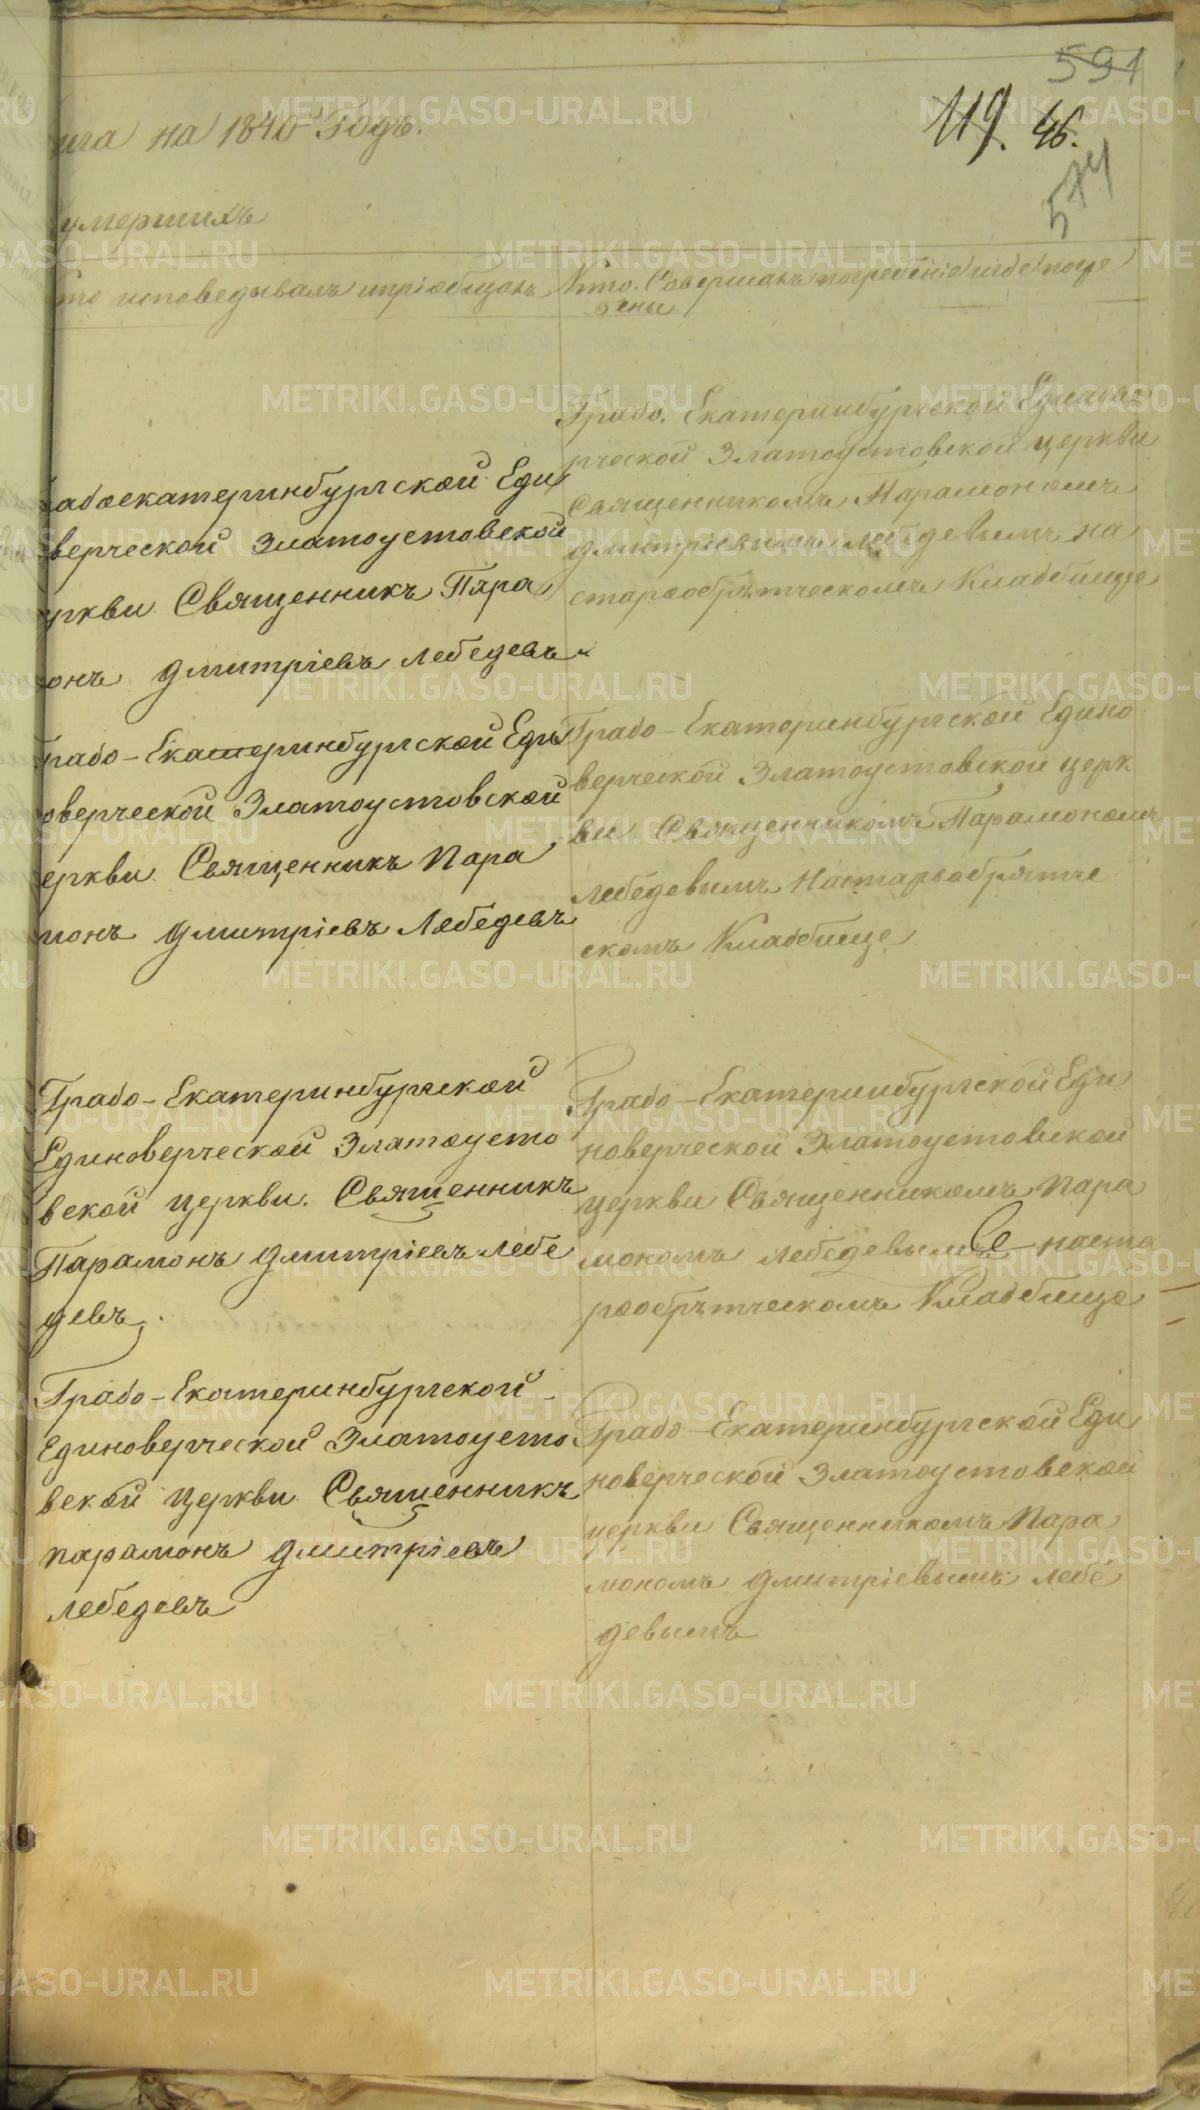 591
119. 46.
574
ига на 1840 Годъ.
умершихъ
то исповедывалъ ипріобщалъ
Кто. Совершалъ погребеніе игде погре
бены
абоекатеринбургской Еди
верческой Златоустовской
уркви Священникъ Пара
онъ Дмитріевъ Лебедевъ
Градо. Екатеринбургской Единове
рческой Златоустовской церкви
Священникомъ Парамономъ
Дмитріевымъ Лебедевымъ на
старообрятческомъ Кладбище
Градо-Екатеринбургской Еди
оверческой Златоустовской
еркви Священникъ Пара
монъ Дмитріевъ Лебедевъ
Градо-Екатеринбургской Едино
верческой Златоустовской церк
ви Священникомъ Парамономъ
Лебедевымъ Настарообрятче
скомъ Кладбище
Градо-Екатеринбургской
Единоверческой Златоусто
вской церкви. Священникъ
Парамонъ Дмитріевъ Лебе
девъ.
Градо-Екатеринбургской Еди
новерческой Златоустовской
церкви Священникомъ Пара
мономъ Лебедевымъ наста
рообрътческомъ Кладбище
Градо-Екатеринбургской
Единоверческой Златоусто
вской Церкви Священникъ
парамонъ Дмитріевъ
Лебедевъ
Градо-Екатеринбургской Еди
новерческой Златоустовской
церкви Священникомъ Пара
мономъ Дмитріевымъ Лебе
девымъ